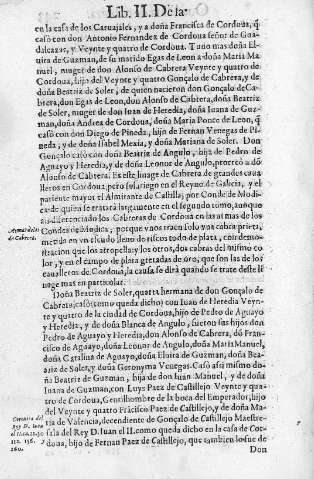 Lib. II. De la
en la casa de los Caruajales, y a doña Francisca de Cordoua, q̃
casò con don Antonio Fernandez de Cordoua señor de Guadalcazar,
y Veynte y quatro de Cordoua. Tuuo mas doña Eluira
de Guzman, de su marido Egas de Leon a doña Maria Manuel,
muger de don Alonso de Cabrera Veynte y quatro de
Cordoua, hijo del Veynte y quatro Gonçalo de Cabrera, y de
doña Beatriz de Soler, de quien nacieron don Gonçalo de Cabrera,
don Egas de Leon, don Alonso de Cabrera, doña Beatriz
de Soler, muger de don Iuan de Heredia, doña Iuana de Guzman,
doña Andrea de Cordoua, doña Maria Ponce de Leon, q̃
casò con don Diego de Pineda, hijo de Fernan Venegas de Pineda,
y de doña Isabel Mexia, y doña Mariana de Soler. Don
Gonçalo casò con doña Beatriz de Angulo, hija de Pedro de
Aguayo y Heredia, y de doña Leonor de Angulo, procreò a dõ
Alonso de Cabrera. Es este linage de Cabrera de grandes caualleros
en Cordoua, pero su solariego en el Reyno de Galicia, y el
pariente mayor el Almirante de Castilla, por Conde de Modica,
de quien se tratarà largamente en el segundo tomo, aunque
diferenciado los Cabreras de Cordoua en las armas de los
Armas de los de Cabrera.
Condes de Modica; porque vnos traen solo vna cabra prieta,
metida en vn escudo lleno de riscos todo de plata, con demostracion
que los atropella, y los otros, dos cabras del mismo color,
y en el campo de plata gretadas de oro, que son las de los
caualleros de Cordoua, la causa se dirà quando se trate deste linage
mas en particular.
Doña Beatriz de Soler, quarta hermana de don Gonçalo de
Cabrera, casò (como queda dicho) con Iuan de Heredia Veynte
y quatro de la ciudad de Cordoua, hijo de Pedro de Aguayo
y Heredia, y de doña Blanca de Angulo, fueron sus hijos don
Pedro de Aguayo y Heredia, don Alonso de Cabrera, dõ Francisco
de Aguayo, doña Leonor de Angulo, doña Maria Manuel,
doña Catalina de Aguayo, doña Eluira de Guzman, doña Beatriz
de Soler, y doña Geronyma Venegas. Casò assi mismo doña
Beatriz de Guzman, hija de don Iuan Manuel, y de doña
Iuana de Guzman, con Luys Paez de Castillejo Veynte y quatro
de Cordoua, Gentilhombre de la boca del Emperador, hijo
del Veynte y quatro Frãcisco Paez de Castillejo, y de doña Maria
de Valencia, decendiente de Gonçalo de Castillejo Maestresala
del Rey D. Iuan el II. como queda dicho en la casa de Cordoua,
hijo de Fernan Paez de Castillejo, que tambien lo fue de
Don